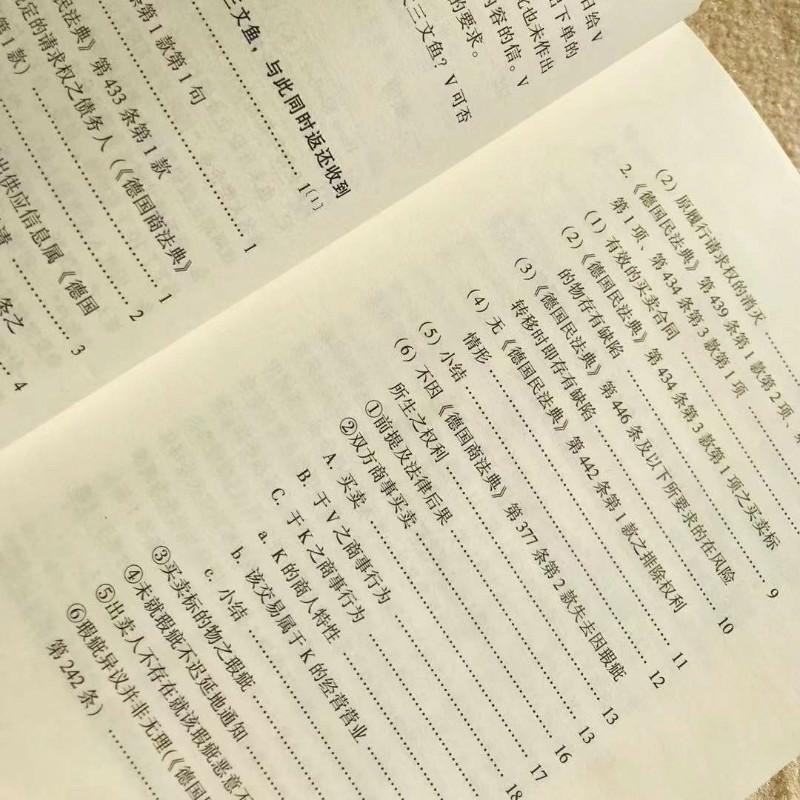 日给 V
出下单的
此也未作出
内容的信。V
的要求。
三文鱼？V 可否
三文鱼，与此同时返还收到
1〔1〕
条第 1 款第 1 句
1
民法典》第 433 条第 1 款
定的请求权之债务人（《德国商法典》
第 1 款）
1
2
出供应信息属《德国
3
条之
4
（2）原履行请求权的消灭
2.《德国民法典》第 439 条第 1 款第 2 项、第
第 1 项、第 434 条第 3 款第 1 项
（1）有效的买卖合同
（2）《德国民法典》第 434 条第 3 款第 1 项之买卖标
的物存有缺陷
9
（3）《德国民法典》第 446 条及以下所要求的在风险
转移时即存有缺陷
10
（4）无《德国民法典》第 442 条第 1 款之排除权利
情形
11
（5）小结
12
（6）不因《德国商法典》第 377 条第 2 款失去因瑕疵
所生之权利
13
①前提及法律后果
13
②双方商事买卖
A. 买卖
16
B. 于 V 之商事行为
17
C. 于 K 之商事行为
18
a. K 的商人特性
b. 该交易属于 K 的经营营业
c. 小结
③买卖标的物之瑕疵
④未就瑕疵不迟延地通知
⑤出卖人不存在就该瑕疵恶意不
⑥瑕疵异议并非无理(《德国
第 242 条）